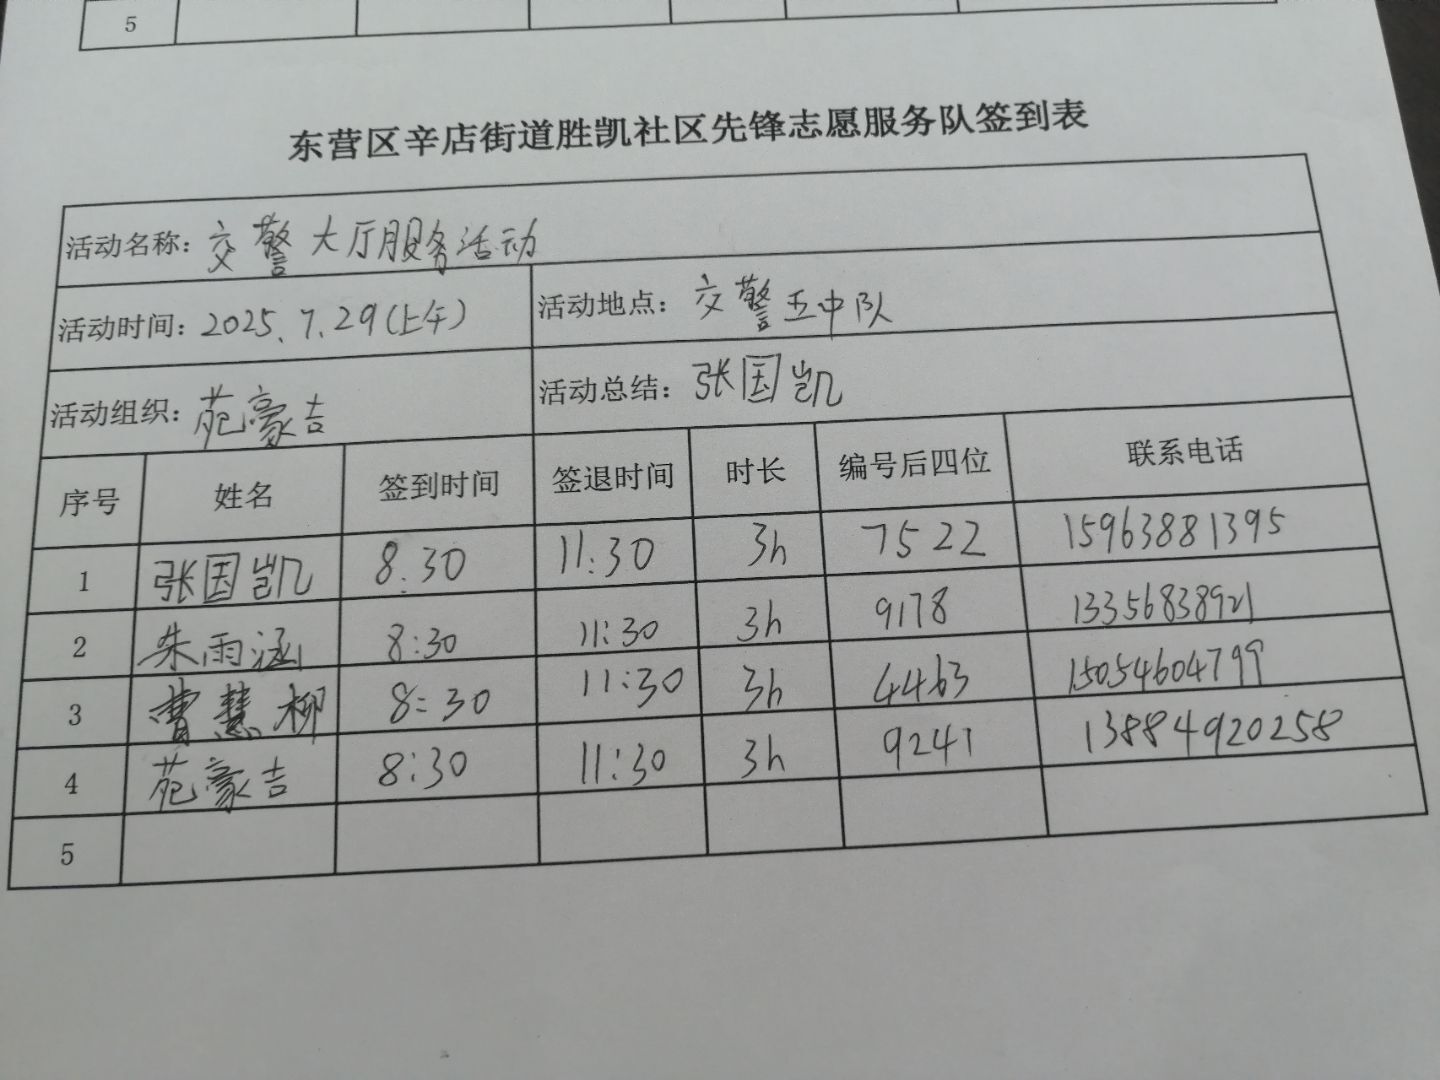 5
东营区辛店街道胜凯社区先锋志愿服务队签到表
活动名称：交警大厅服务活动
活动时间：2025.7.29(上午) 活动地点：交警五中队
活动组织：苑豪吉 活动总结：张国凯
序号 姓名 签到时间 签退时间 时长 编号后四位 联系电话
1 张国凯 8:30 11:30 3h 7522 15963881395
2 朱雨涵 8:30 11:30 3h 9178 13356838921
3 曹慧柳 8:30 11:30 3h 4463 15054604799
4 苑豪吉 8:30 11:30 3h 9241 13884920258
5